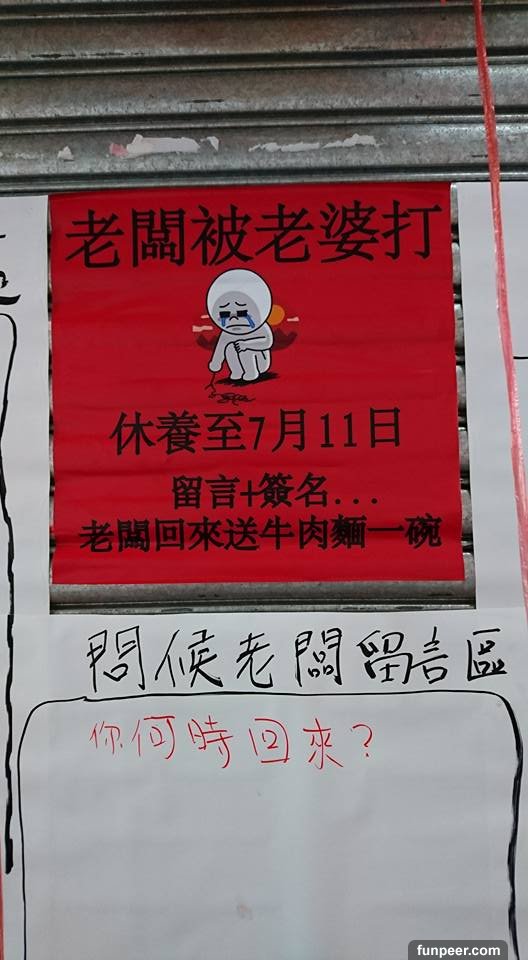 老闆被老婆打
休養至7月11日
留言+簽名...
老闆回來送牛肉麵一碗
問候老闆留言區
你何時回來?
funpeer.com